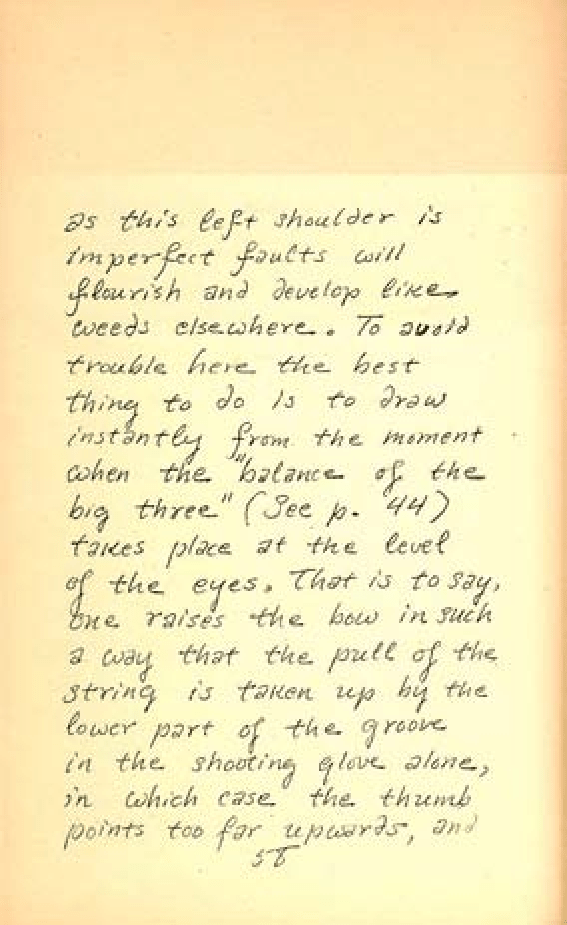 as this left shoulder is
imperfect faults will
flourish and develop like
weeds elsewhere. To avoid
trouble here the best
thing to do is to draw
instantly from the moment
when the "balance of the
big three" (See p. 44)
takes place at the level
of the eyes. That is to say,
one raises the bow in such
a way that the pull of the
string is taken up by the
lower part of the groove
in the shooting glove alone,
in which case the thumb
points too far upwards, and